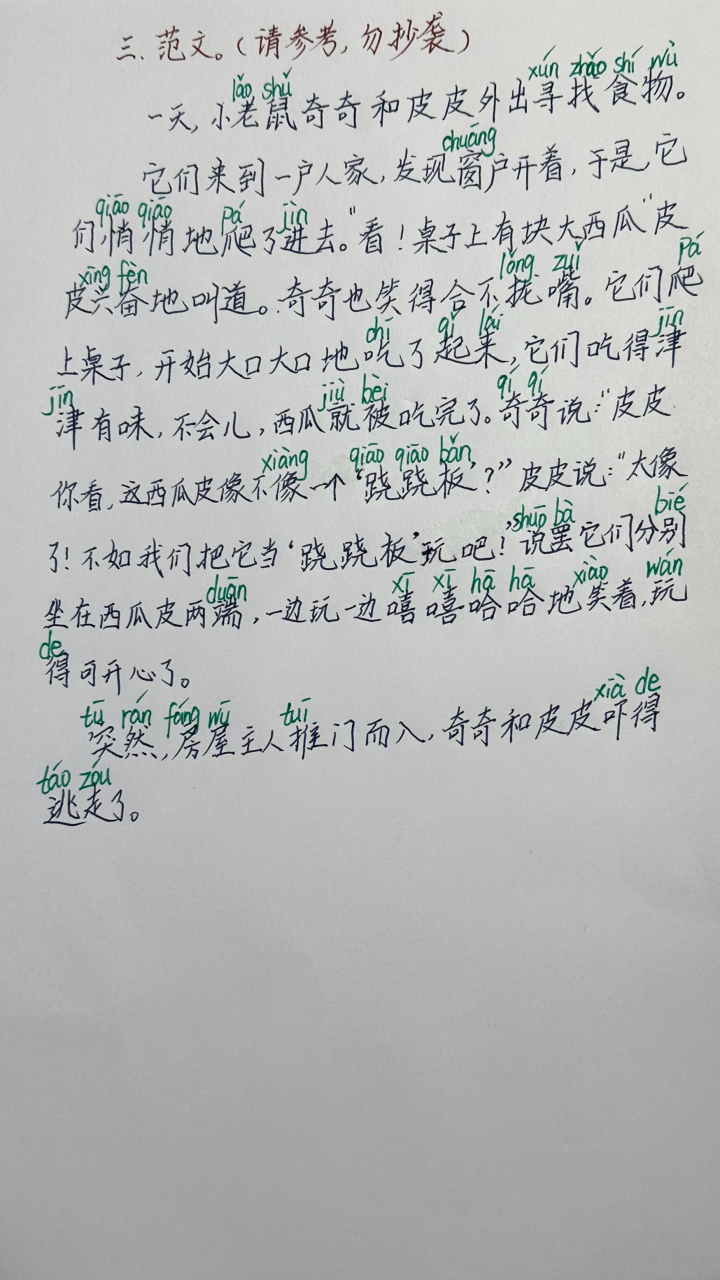 三、范文。(请参考,勿抄袭)
lǎo shǔ xún zhǎo shí wù
一天,小老鼠奇奇和皮皮外出寻找食物。
chuāng
它们来到一户人家,发现窗户开着,于是,它
qiāo qiāo pá jìn
们,悄悄地爬了进去。"看!桌子上有块大西瓜"皮
xīng fèn lǒng zuǐ pá
皮兴奋地叫道。奇奇也笑得合不拢嘴。它们爬
chī qǐ lái jīn
上桌子,开始大口大口地吃了起来,它们吃得津
jīn jiù bèi qí qí
津有味,不会儿,西瓜就被吃完了。奇奇说:"皮皮
xiàng qiāo qiāo bǎn
你看,这西瓜皮像不像一个'跷跷板'?"皮皮说:"太像
shuō bà bié
了!不如我们把它当'跷跷板'玩吧!"说罢它们分别
duān xī xī hā hā xiào wán
坐在西瓜皮两端,一边玩一边嘻嘻哈哈地笑着,玩
de
得可开心了。
tū rán fáng wū tuī xià de
突然,房屋主人推门而入,奇奇和皮皮吓得
táo zǒu
逃走了。